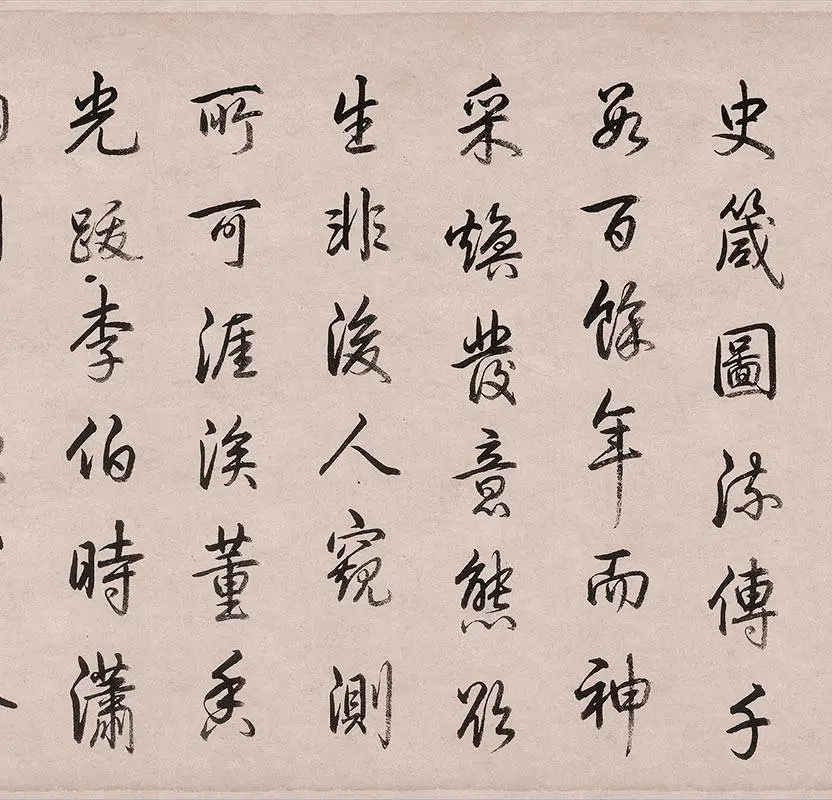 史箴圖流傳千
數百餘年而神
采煥發意態欲
生非後人窺測
所可涯涘董香
光跋李伯時瀟